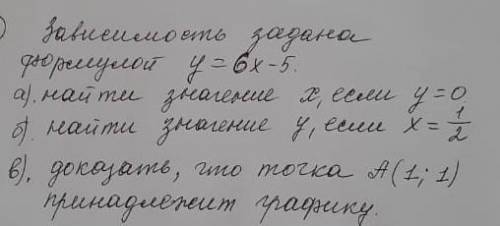 Зависимость задана
формулой y = 6x - 5.
а). найти значение x, если y = 0
б). найти значение y, если x = 1/2
в). доказать, что точка A(1; 1)
принадлежит графику.